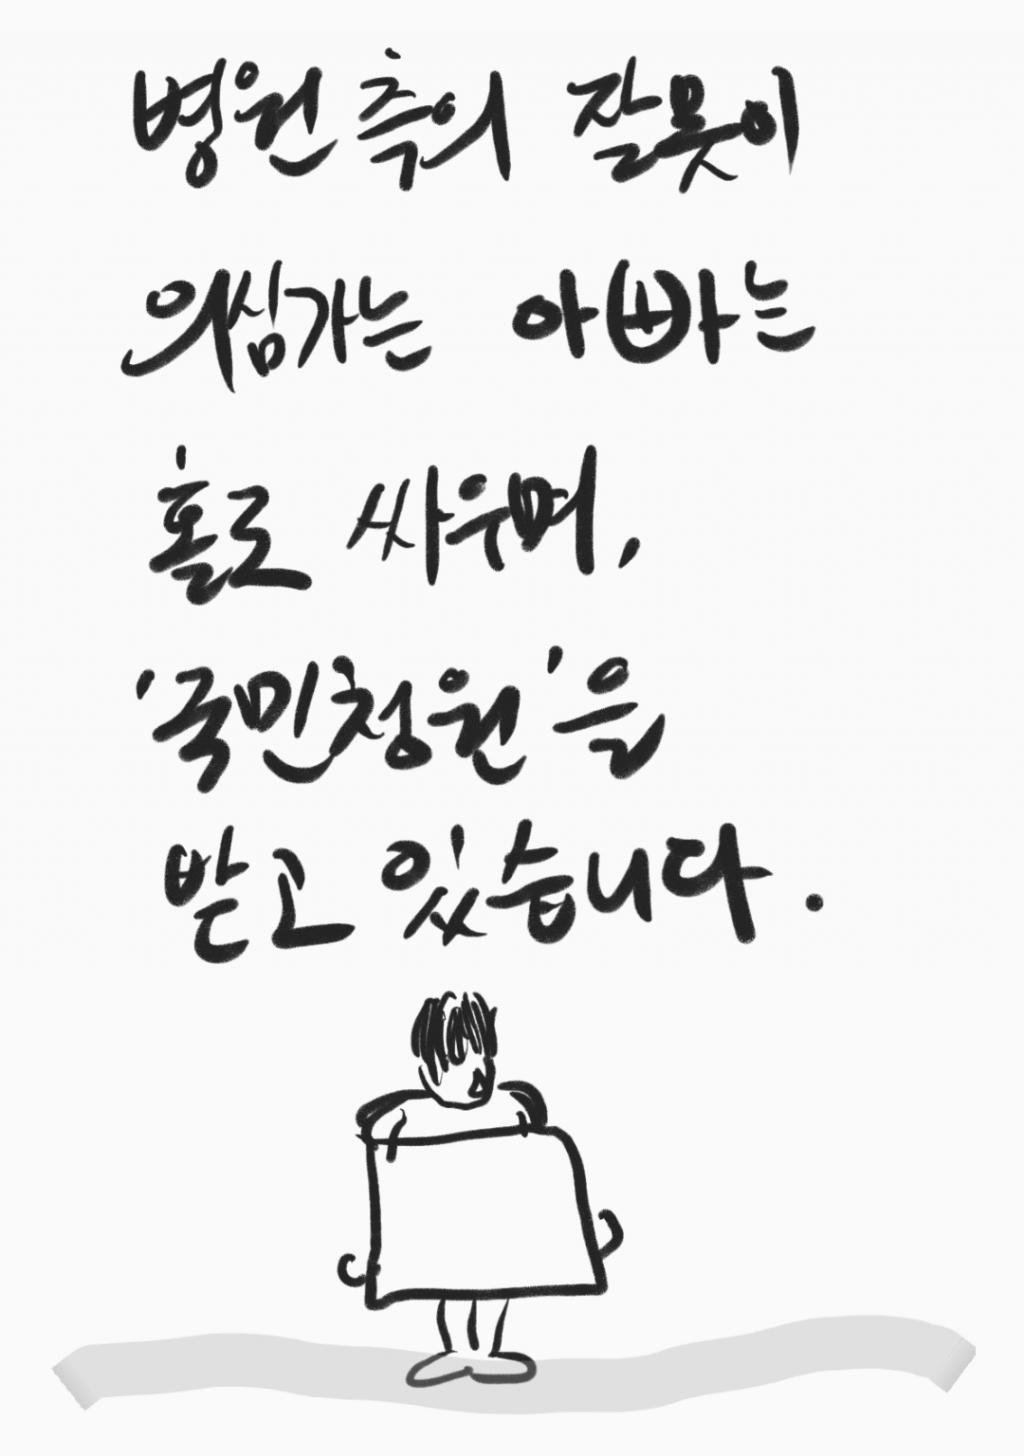 병원 측의 잘못이
의심가는 아빠는
홀로 싸우며,
'국민청원'을
받고 있습니다.